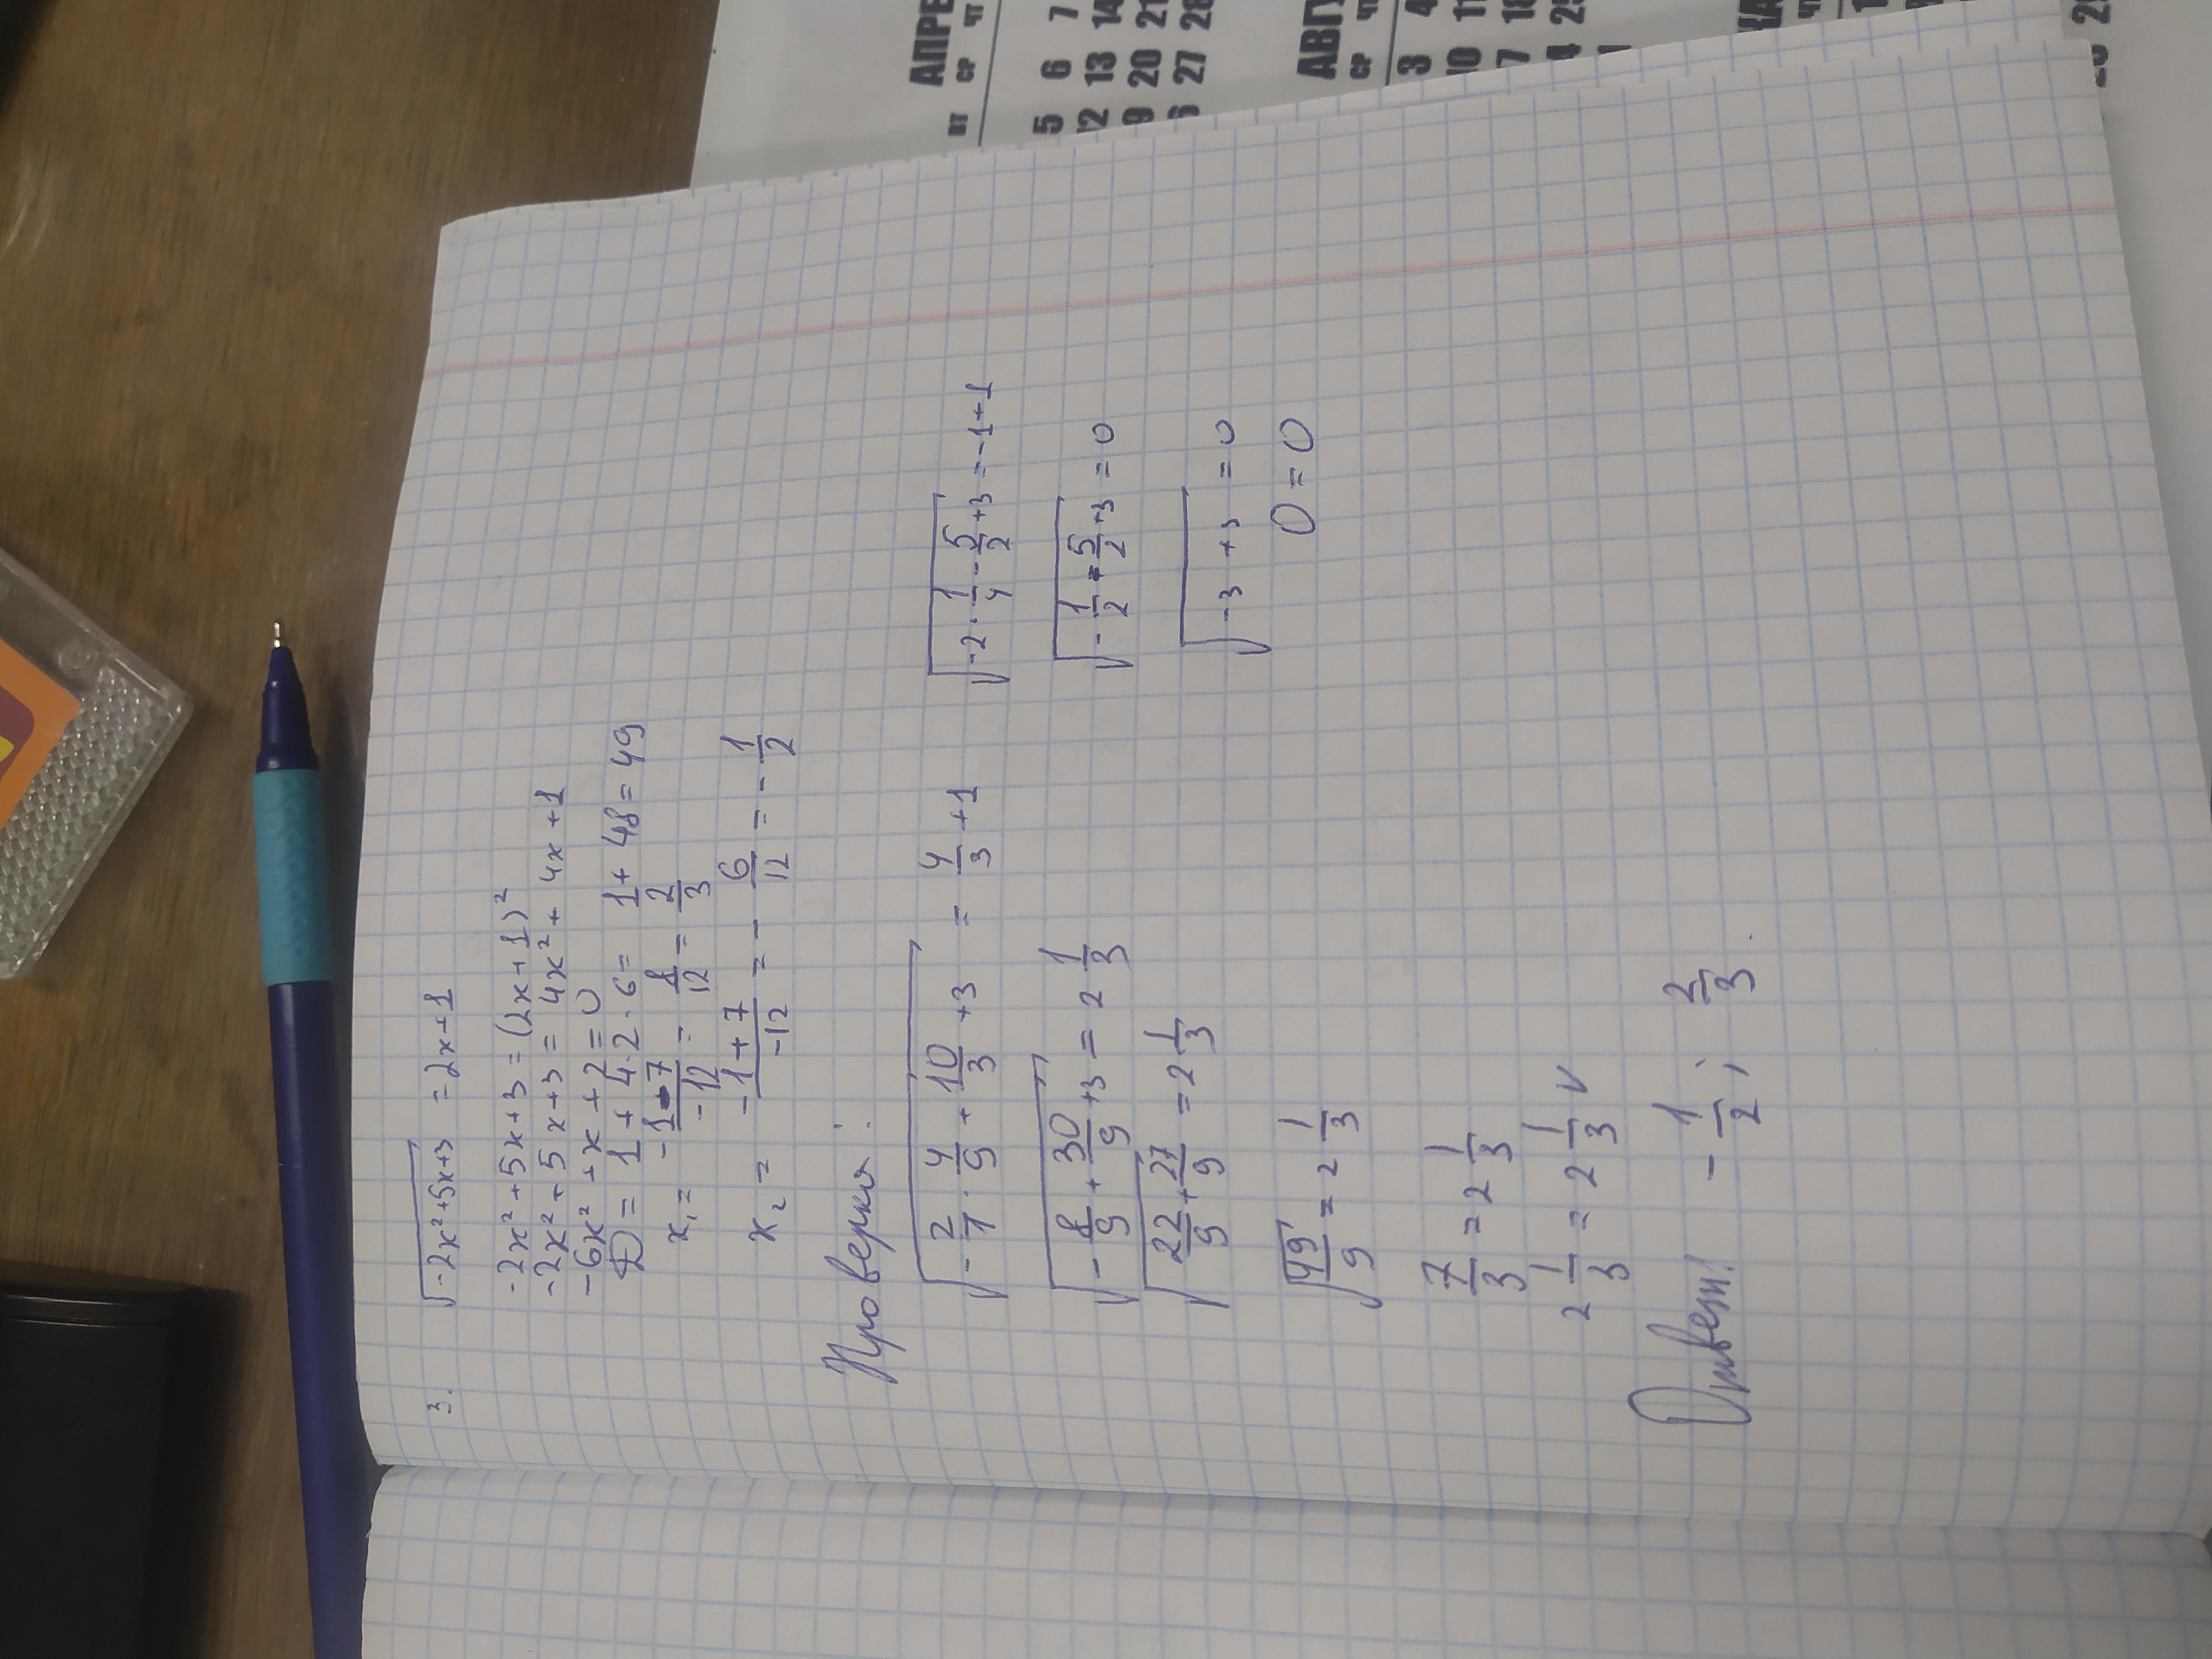 3. √(-2x²+5x+3) = 2x+1
-2x²+5x+3=(2x+1)²
-2x²+5x+3=4x²+4x+1
-6x²+x+2=0
D=1+4·2·6=1+48=49
x₁=(-1-7)/(-12)=8/12=2/3
x₂=(-1+7)/(-12)=-6/12=-1/2
Проверка:
√(-2/1·4/9+10/3+3) = 4/3+1
√(-8/9+30/9+3)=2 1/3
√(22/9+27/9)=2 1/3
√(49/9)=2 1/3
7/3=2 1/3
2 1/3=2 1/3 v
√(-2·1/4-5/2+3)=-1+1
√(-1/2-5/2+3)=0
√(-3+3)=0
0=0
Ответ: -1/2; 2/3.
АПРЕ
ВТ СР ЧТ
5 6 7
12 13 14
9 20 21
6 27 28
АВГУ
СР ЧТ
3 4
10 11
7 18
4 25